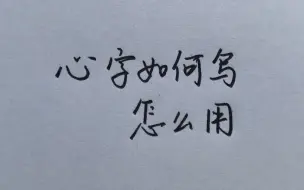 心字如何写
怎么用